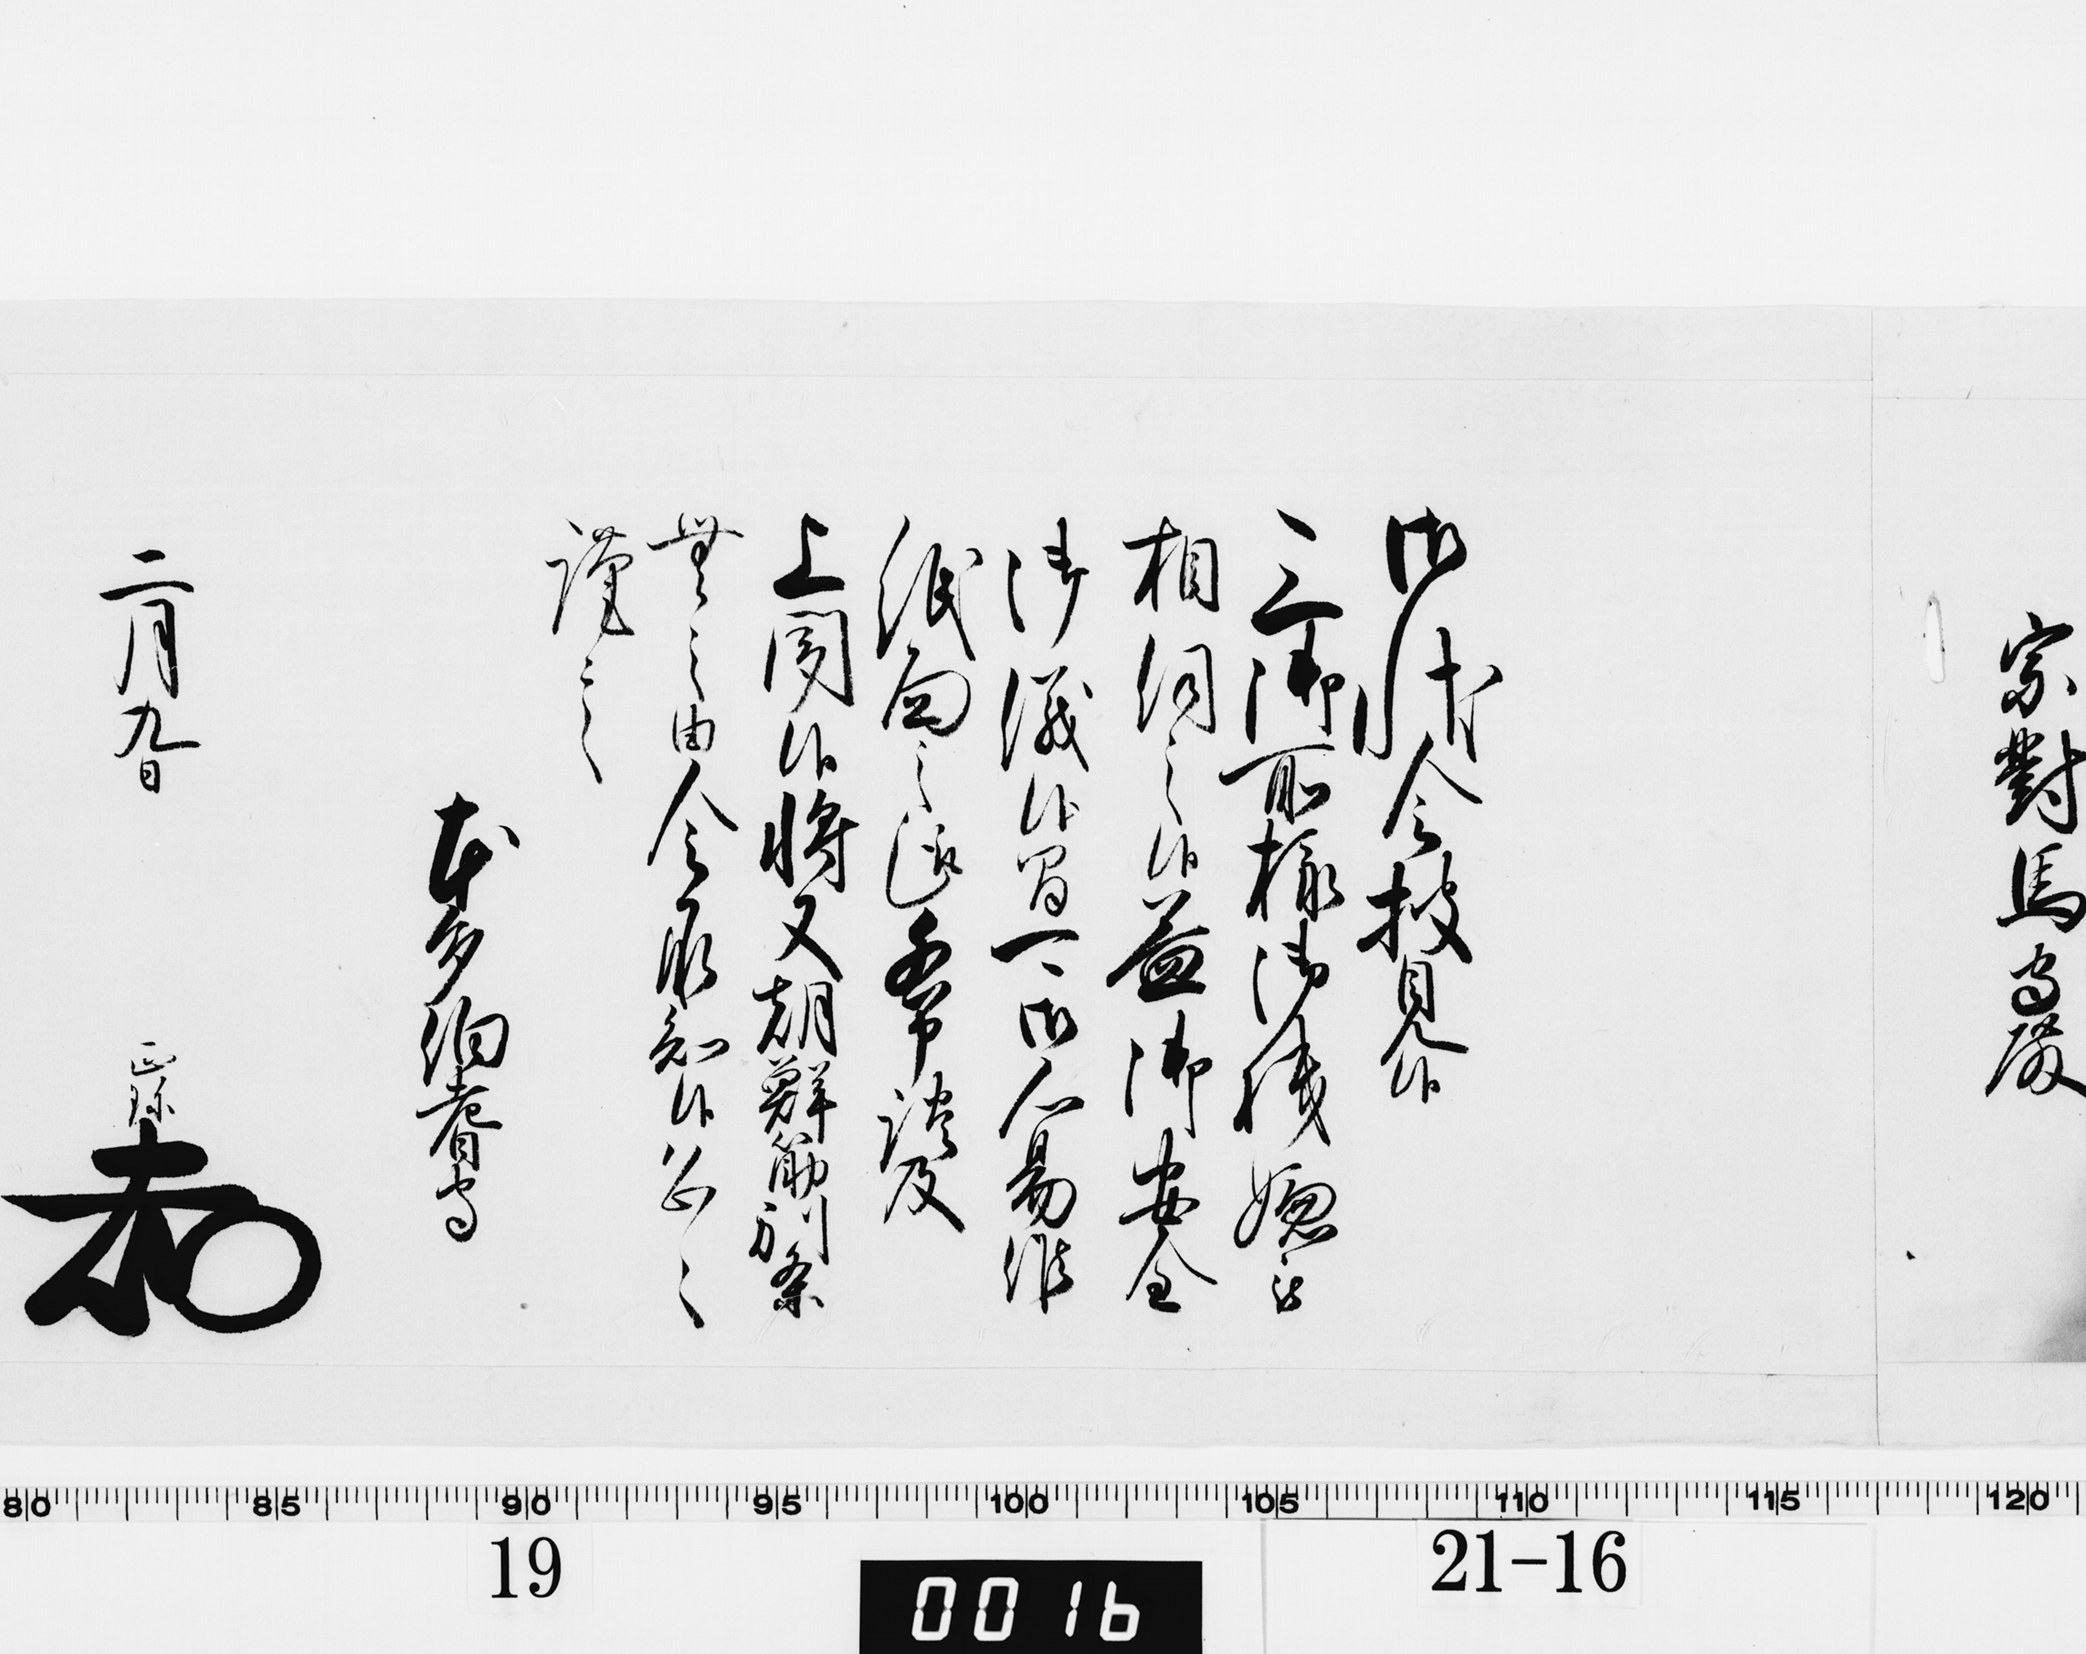 宗對馬守殿
御状令披見候
三御所様御機嫌之
相伺之候益御安全
御儀候間可御心易候
紙面之趣各申談及
上聞候将又朝鮮筋別条
無之由令承知候恐々
謹言
本多伯耆守
二月九日
正珍
80 85 90 95 100 105 110 115 120
19
0016
21-16